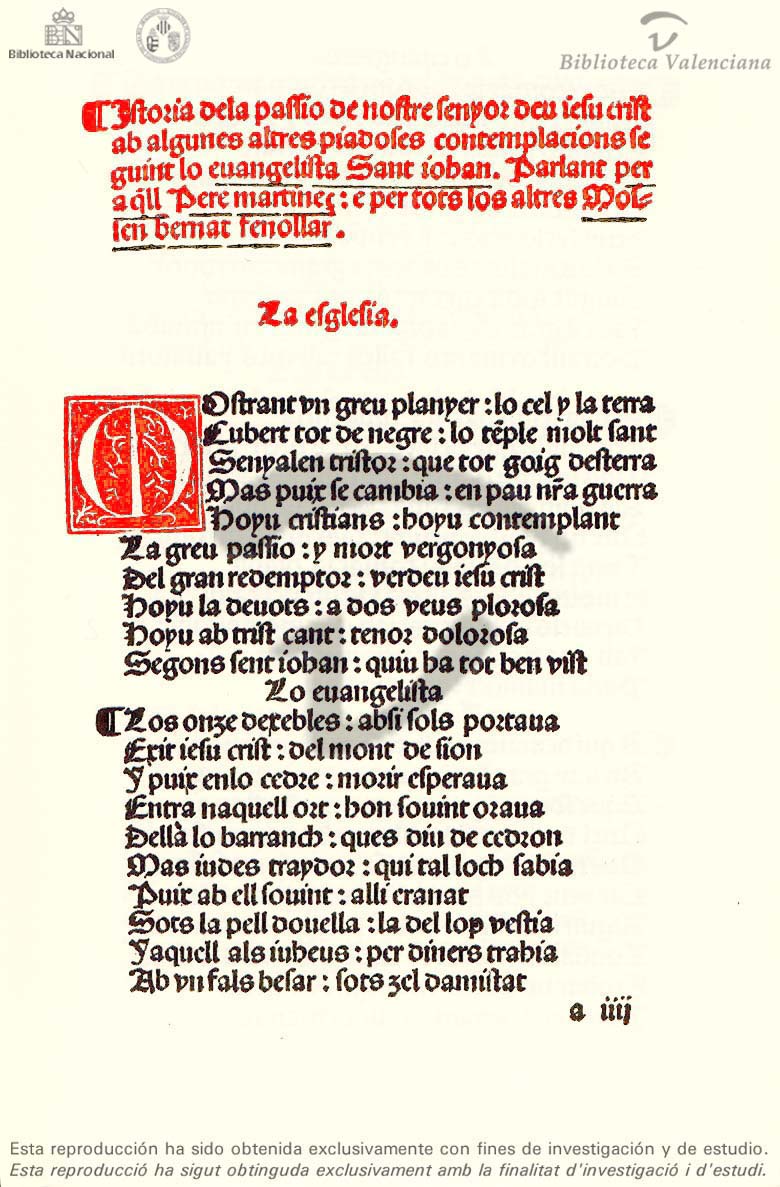 Biblioteca Nacional
Biblioteca Valenciana
¶Istoria dela passio de nostre senyor deu iesu crist
ab algunes altres piadoses contemplacions se
guint lo euangelista Sant iohan. Parlant per
a q̃ll Pere martineç: e per tots los altres Mos-
sen bernat fenollar.
La esglesia.
MOstrant vn greu planyer : lo cel y la terra
Cubert tot de negre : lo tẽple molt sant
Senyalen tristor : que tot goig desterra
Mas puix se cambia : en pau nr̃a guerra
Hoyu cristians : hoyu contemplant
La greu passio : y mort vergonyosa
Del gran redemptor : verdeu iesu crist
Hoyu la deuots : a dos veus plorosa
Hoyu ab trist cant : tenor dolorosa
Segons sent iohan : quiu ha tot ben vist
Lo euangelista
¶Los onze dexebles : absi sols portaua
Exit iesu crist : del mont de sion
Y puix enlo cedre : morir esperaua
Entra naquell ort : hon souint oraua
Dellà lo barranch : ques diu de cedron
Mas iudes traydor : qui tal loch sabia
Puix ab ell souint : alli era nat
Sots la pell douella : la del lop vestia
Yaquell als iuheus : per diners trahia
Ab vn fals besar : sots zel damistat
a iiij
Esta reproducción ha sido obtenida exclusivamente con fines de investigación y de estudio.
Esta reproducció ha sigut obtinguda exclusivament amb la finalitat d'investigació i d'estudi.